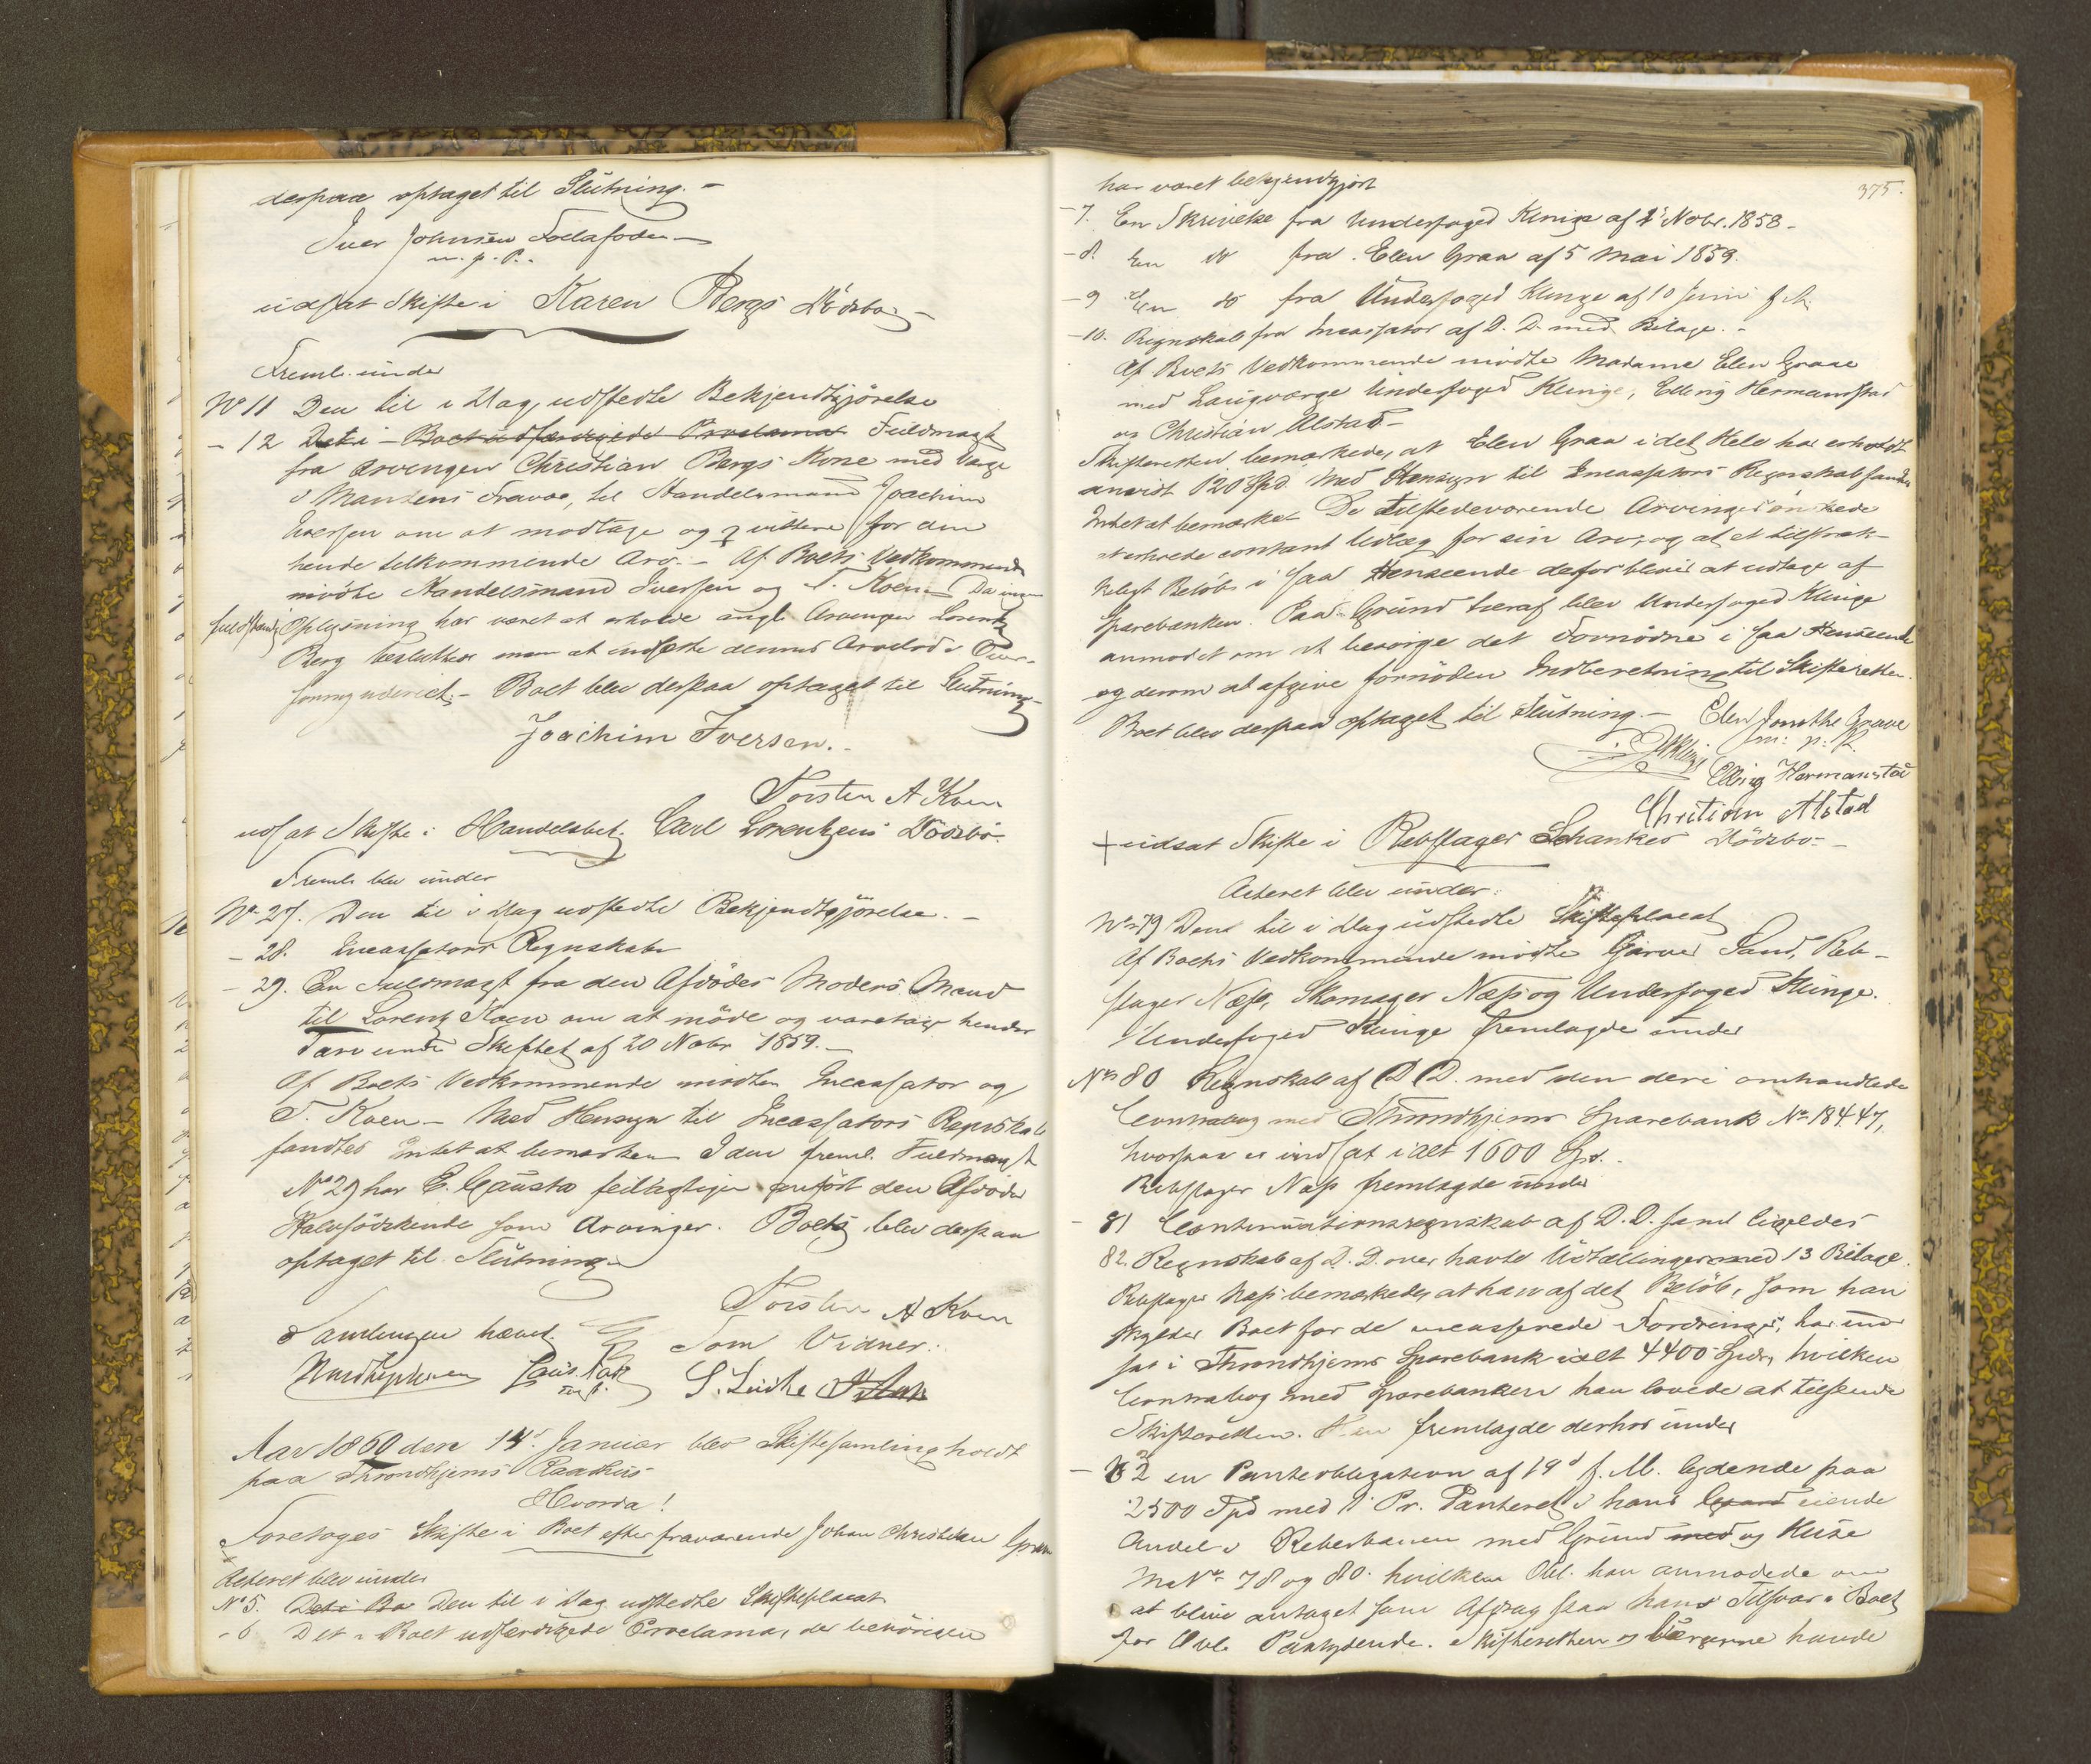 derpaa optaget til Slutning. –
Iver Johnsen
m. p. P.
udsat Skifte i Karen Bergs Dödsbo –
Freml. under
No 11 Den til i Dag udstedte Bekjendtgjörelse
– 12 Det i Boet udfærdigede Proclama Fuldmagt
fra Arvingen Christian Bergs Kone med Værge
i Mandens Fravær, til Handelsmand Joachim
Iversen om at modtage og qvittere for den
hende tilkommende Arv. – Af Boets Vedkommende
mödte Handelsmand Iversen og T. Koen. Da ingen
fuldstændig Oplysning har været at erholde angl. Arvingen Lorentz
Berg besluttede man at indsætte dennes Arvelod i Over-
formynderiet. – Boet blev derpaa optaget til Slutning
Joachim Iversen. –
Torsten A Koen
udsat Skifte i Handelsbet. Carl Lorentzens Dödsbo.
Freml. blev under
No 27. Den til i Dag udstedte Bekjendtgjörelse. –
– 28. Incassators Regnskab
– 29. En Fuldmagt fra den Afdödes Moders Mand
til Lorentz Koen om at möde og varetage hendes
Tarv under Skiftet af 20 Novbr 1859. –
Af Boets Vedkommende mödte Incassator og
T. Koen – Med Hensyn til Incassators Regnskab
fandtes Intet at bemærke. I den freml. Fuldmagt
No 29 har E. feilagtigen anfört den Afdödes
Halvsödskende som Arvinger. Boet blev derpaa
optaget til Slutning
Torsten A Koen
Samlingen hævet.
Som Vidner:
S. Lüdke
Aar 1860 den 14d Januar blev Skiftesamling holdt
paa Throndhjems Raadhus
Hvorda!
Foretoges Skifte i Boet efter fraværende Johan Christian
Acteret blev under
No 5. Det i Bo Den til i Dag udstedte Skifteplacat
– 6 Det i Boet udfærdigede Proclama, der behörigen
375.
har været bekjendtgjort
– 7. En Skrivelse fra Underfoged Klinge af 2' Novbr. 1858 –
– 8. En do fra Elen Graa af 5 Mai 1859.
– 9 En do fra Underfoged Klinge af 10 Juni f. A.
– 10. Regnskab fra Incassator af D. D. med Bilage. –
Af Boets Vedkommende mödte Madame Elen Graae
med Laugværge Underfoged Klinge, Elling Hermanstad
og Christian Alstad –
Skifteretten bemærkede, at Elen Graa i det Hele har erholdt
anvist 120 Spd. Med Hensyn til Incassators Regnskab fandtes
Intet at bemærke. De tilstedeværende Arvinger önskede
at erholde contant Udlæg for sin Arv, og at et tilstræk-
keligt Belöb i saa Henseende derfor blev at udtage af
Sparebanken. Paa Grund heraf blev Underfoged Klinge
anmodet om at besörge det Fornödne i saa Henseende
og derom at afgive fornöden Indberetning til Skifteretten.
Boet blev derpaa optaget til Slutning. – Elen Graae
m: p: P.
Klinge
Elling Hermanstad
Christian Alstad
+ udsat Skifte i Rebslager Schankes Dödsbo. –
Acteret blev under:
No 79 Den til i Dag udstedte Skifteplacat
Af Boets Vedkommende mödte Garver Sand, Reb-
slager Næss, Skomager Næss og Underfoged Klinge.
Underfoged Klinge fremlagde under
No 80 Regnskab af D. D. med den deri omhandlede
Contrabog med Throndhjems Sparebank No 18447,
hvorpaa er indsat i alt 1600 Spd. –
Rebslager Næss fremlagde under
– 81 Continuationsregnskab af D. D. samt ligeledes
82. Regnskab af D. D. over havte Udtællinger med 13 Bilage.
Rebslager Næss bemærkede, at han af det Belöb, som han
skylder Boet for de incasserede Fordringer, har ind-
sat i Throndhjems Sparebank i alt 4400 Spd., hvilken
Contrabog med Sparebanken han lovede at tilsende
Skifteretten. Han fremlagde derhos under
– 82 en Panteobligation af 19d f. M. lydende paa
2500 Spd med 1 Pr. Panteret i hans eiende
Andel i Reberbanen med Grund med og Huse
Mat No 78 og 80. hvilken Obl. han anmodede om
at blive antaget som Afdrag paa hans Tilsvar i Boet
for Obl. Paalydende. Skifteretten og Værgerne havde